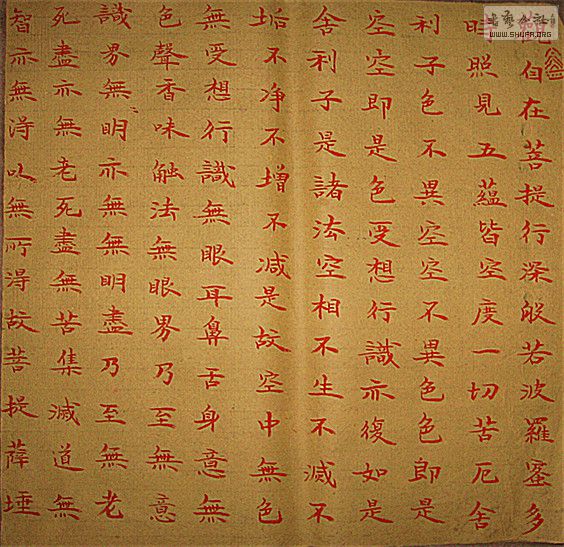 自在菩提行深般若波羅蜜多
時照見五蘊皆空度一切苦厄舍
利子色不異空空不異色色即是
空空即是色受想行識亦復如是
舍利子是諸法空相不生不滅不
垢不净不增不减是故空中無色
無受想行識無眼耳鼻舌身意無
色聲香味觸法無眼界乃至無意
識界無明亦無無明盡乃至無老
死盡亦無老死盡無苦集滅道無
智亦無淂以無所淂故菩提薩埵
WWW.SHUFA.ORG